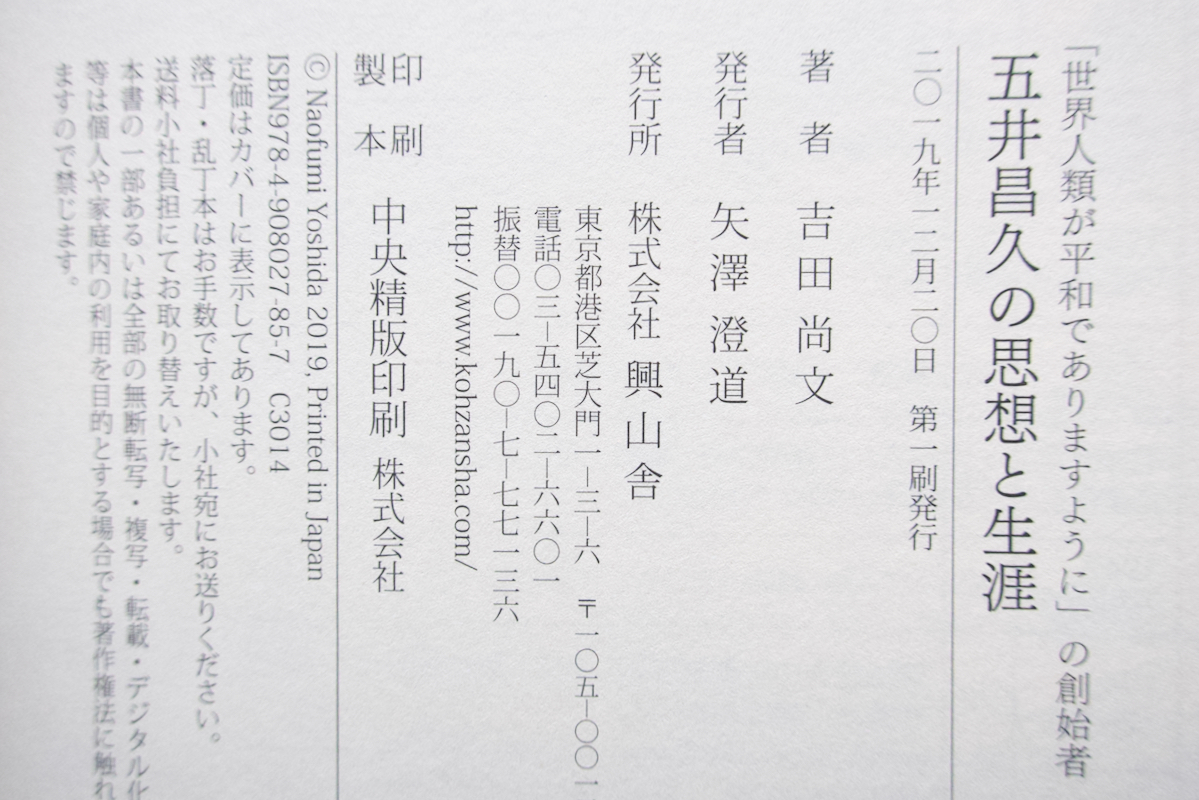 「世界人類が平和でありますように」の創始者
五井昌久の思想と生涯
二〇一九年一二月二〇日　第一刷発行
著者　吉田尚文
発行者　矢澤澄道
発行所　株式会社 興山舎
東京都港区芝大門一―三―六　〒一〇五―〇〇一
電話〇三―五四〇二―六六〇一
振替〇〇一九〇―七―七七一三六
http://www.kohzansha.com/
印刷
製本　中央精版印刷 株式会社
© Naofumi Yoshida 2019, Printed in Japan
ISBN978-4-908027-85-7　C3014
定価はカバーに表示してあります。
落丁・乱丁本はお手数ですが、小社宛にお送りください。
送料小社負担にてお取り替えいたします。
本書の一部あるいは全部の無断転写・複写・転載・デジタル化
等は個人や家庭内の利用を目的とする場合でも著作権法に触れ
ますので禁じます。